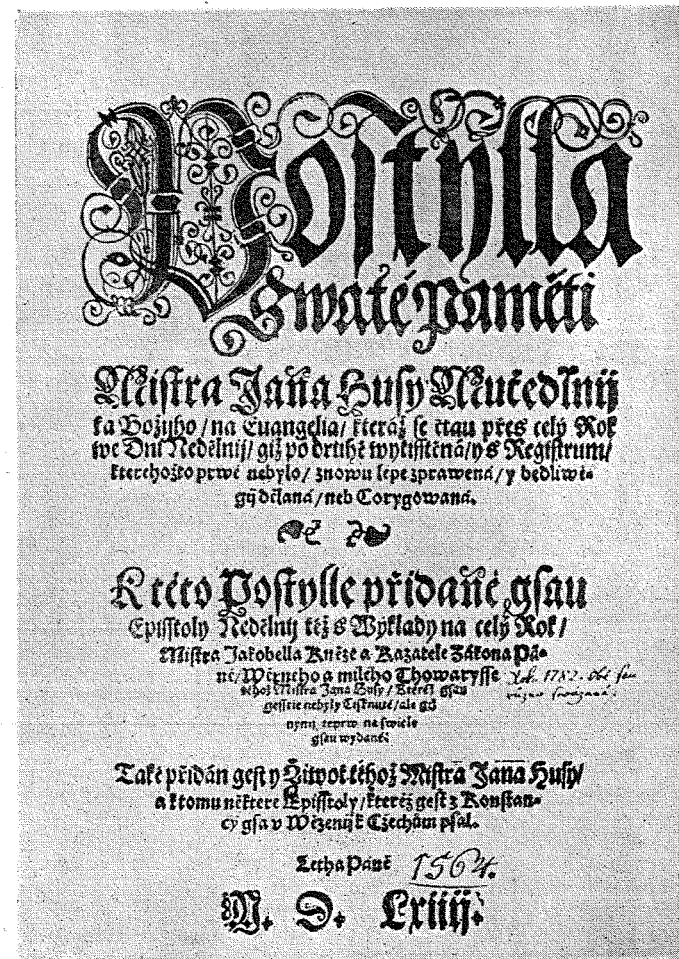 Postylla
Swaté Paměti
Mistra Jana Husy Mučedlnij
ka Božijho / na Euangelia / kteráž se čtau přes celý Rok
we Dni Nedělnij / giž po druhé wytisstěná / y s Registrum /
kterehožto prwé nebylo / znowu lepe zprawená / y bedliwě-
gij dělaná / neb Corygowaná.
K této Postylle přidané gsau
Episstoly Nedělnij též s Wyklady na celý Rok /
Mistra Jakobella Kněze a Kazatele Zákona Pá-
ně / Wěrného a milého Thowarysse
téhož Mistra Jana Husy / Kteréž gsau
gesstie nebyly Tisstiené / ale giž
nynij teprw na swietlo
gsau wydané.
1782. obě
Také přidán gest y Žiwot téhož Mistra Jana Husy /
a k tomu některé Episstoly / kteréž gest z Konstan-
cy gsa v Wězenij k Czechům psal.
Letha Páně 1564.
M. D. Lxiiij.